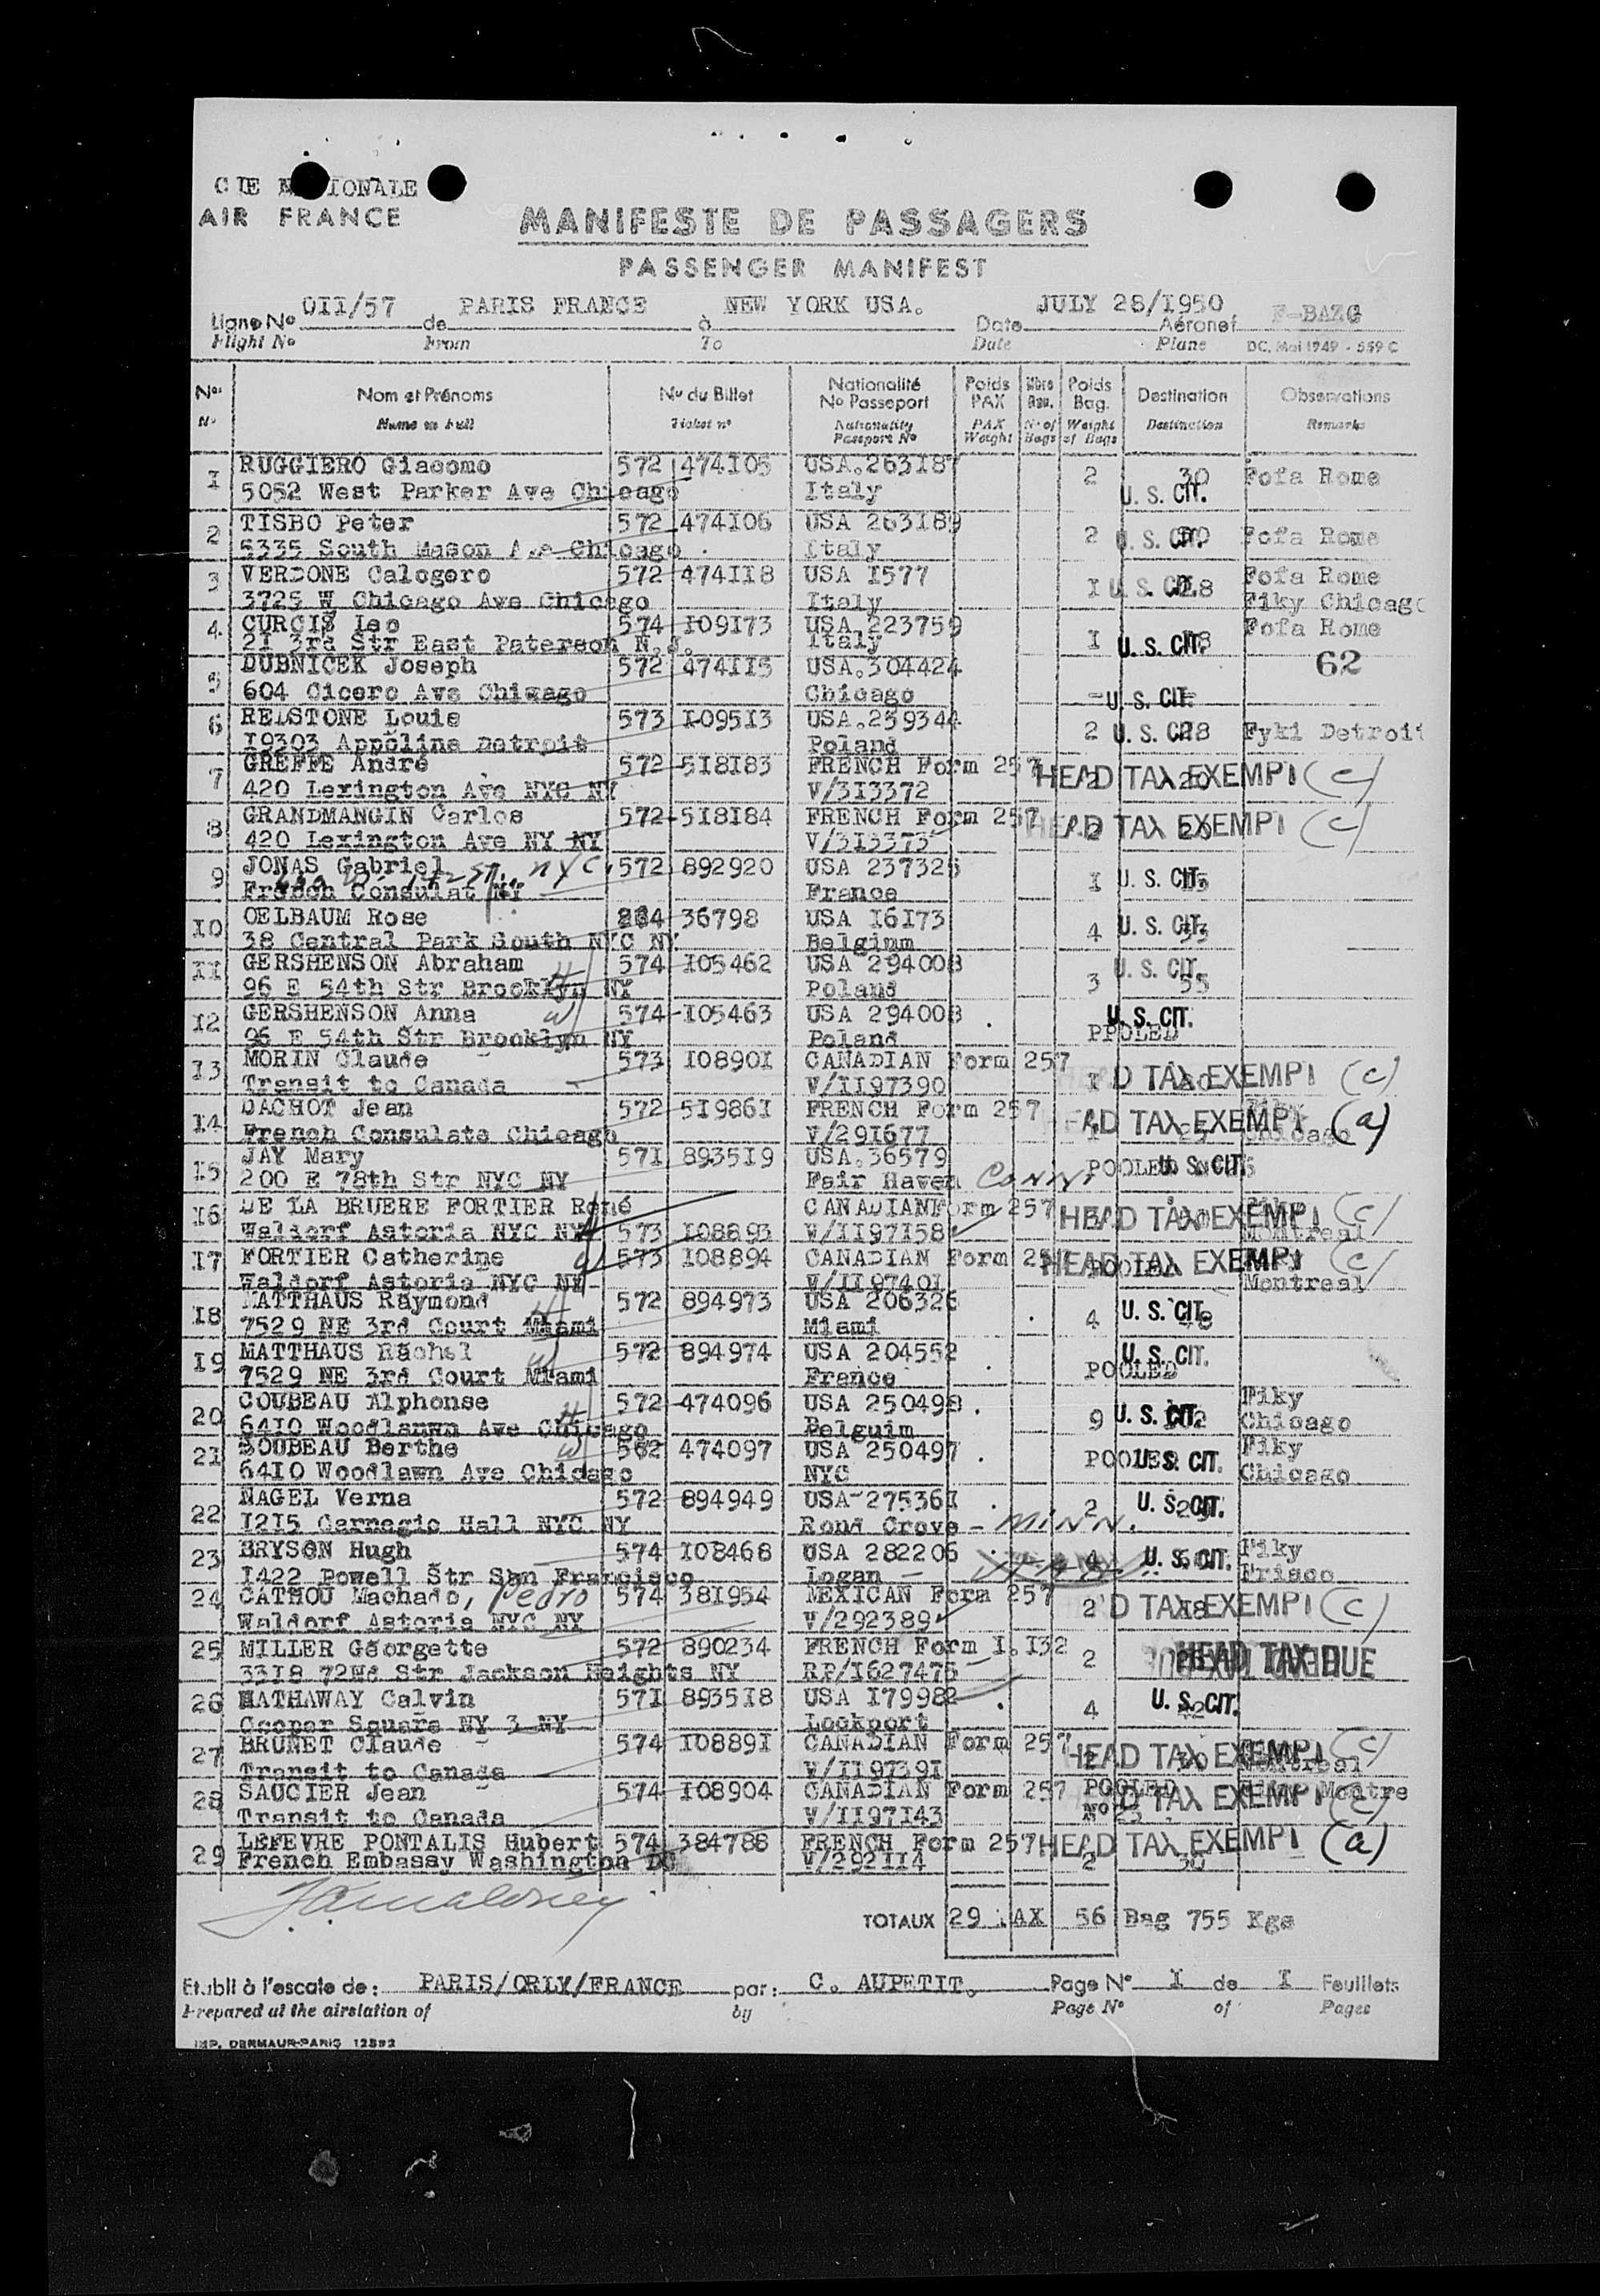 CIE NATIONALE
AIR FRANCE
MANIFESTE DE PASSAGERS
PASSENGER MANIFEST
Ligne No OII/57 de PARIS FRANCE à NEW YORK USA. Date JULY 28/I950 Aéronef F-BAZG
Flight No From To Date Plane DC. Mai 1949 - 559 C
Nos Nom et Prénoms No du Billet Nationalité No Passeport Poids PAX Nbre Bag. Poids Bag. Destination Observations
N. Name in full Ticket no Nationality Passport No PAX Weight No of Bags Weight of Bags Destination Remarks
I RUGGIERO Giacomo 572 474I05 USA.263I87 2 30 Fofa Rome
5052 West Parker Ave Chicago Italy U. S. CIT.
2 TISBO Peter 572 474I06 USA 263I89 2 U. S. CIT. Fofa Rome
5335 South Mason Ave Chicago Italy
3 VERDONE Calogero 572 474II8 USA I577 I U. S. CIT. Fofa Rome
3725 W Chicago Ave Chicago Italy Fiky Chicago
4 CURCIS Leo 574 I09I73 USA 223759 I U. S. CIT. Fofa Rome
2I 3rd Str East Paterson N.J. Italy
5 DUBNICEK Joseph 572 474II5 USA.304424 62
604 Cicero Ave Chicago Chicago U. S. CIT.
6 REDSTONE Louis 573 I095I3 USA.259344 2 U. S. CIT. 28 Fyki Detroit
I9303 Appoline Detroit Poland
7 GREFFE André 572 5I8I83 FRENCH Form 257 2 20 HEAD TAX EXEMPT (c)
420 Lexington Ave NYC NY V/3I3372
8 GRANDMANGIN Carlos 572 5I8I84 FRENCH Form 257 2 HEAD TAX EXEMPT (c)
420 Lexington Ave NY NY V/3I3373
9 JONAS Gabriel NYC. 572 892920 USA 237325 I U. S. CIT.
French Consulat NY France
I0 OELBAUM Rose 36798 USA I6I73 4 U. S. CIT.
38 Central Park South NYC NY Belgium
II GERSHENSON Abraham H 574 I05462 USA 294008 3 U. S. CIT. 55
96 E 54th Str Brooklyn NY Poland
I2 GERSHENSON Anna W 574 I05463 USA 294008 U. S. CIT.
96 E 54th Str Brooklyn NY Poland PPOLED
I3 MORIN Claude 573 I0890I CANADIAN Form 257 I HEAD TAX EXEMPT (c)
Transit to Canada V/II97390
I4 DACHOT Jean 572 5I986I FRENCH Form 257 HEAD TAX EXEMPT (a)
French Consulate Chicago V/29I677 Chicago
I5 JAY Mary 57I 8935I9 USA.36579 POOLED U. S. CIT.
200 E 78th Str NYC NY Fair Haven Conn.
I6 DE LA BRUERE FORTIER René CANADIANForm 257 HEAD TAX EXEMPT (c)
Waldorf Astoria NYC NY H 573 I08893 V/II97I58 Montreal
I7 FORTIER Catherine W 573 I08894 CANADIAN Form 257 POOLED HEAD TAX EXEMPT (c)
Waldorf Astoria NYC NY V/II9740I Montreal
I8 MATTHAUS Raymond H 572 894973 USA 206326 4 U. S. CIT.
7529 NE 3rd Court Miami Miami
I9 MATTHAUS Rachel W 572 894974 USA 204552 POOLED U. S. CIT.
7529 NE 3rd Court Miami France
20 COUBEAU Alphonse H 572 474096 USA 250498 9 U. S. CIT. Fiky
64I0 Woodlanwn Ave Chicago Belguim Chicago
2I COUBEAU Berthe W 562 474097 USA 250497 POOLES U. S. CIT. Fiky
64I0 Woodlawn Ave Chicago NYC Chicago
22 NAGEL Verna 572 894949 USA 27536I 2 U. S. CIT.
I2I5 Carnegie Hall NYC NY Rond Grove - MINN.
23 BRYSON Hugh 574 I08468 USA 282206 4 U. S. CIT. Fiky
I422 Powell Str San Francisco Logan Frisco
24 CATHOU Machado, Pedro 574 38I954 MEXICAN Form 257 2 I8 HEAD TAX EXEMPT (c)
Waldorf Astoria NYC NY V/292389
25 MILLER Georgette 572 890234 FRENCH Form I.I32 2 HEAD TAX DUE
33I8 72Nd Str Jackson Heights NY RP/I627475
26 HATHAWAY Calvin 57I 8935I8 USA I79982 4 U. S. CIT.
Cooper Square NY 3 NY Lockport
27 BRUNET Claude 574 I0889I CANADIAN Form 257 2 HEAD TAX EXEMPT (c)
Transit to Canada V/II9739I Montreal
28 SAUCIER Jean 574 I08904 CANADIAN Form 257 POOLED HEAD TAX EXEMPT (c)
Transit to Canada V/II97I43
29 LEFEVRE PONTALIS Hubert 574 384788 FRENCH Form 257 HEAD TAX EXEMPT (a)
French Embassy Washington DC V/292II4 2 30
TOTAUX 29 PAX 56 Bag 755 Kgs
Etabli à l'escale de: PARIS/ORLY/FRANCE par: C. AUPETIT. Page No I de I Feuillets
Prepared at the airstation of by Page No of Pages
IMP. DERMAUR-PARIS 12592